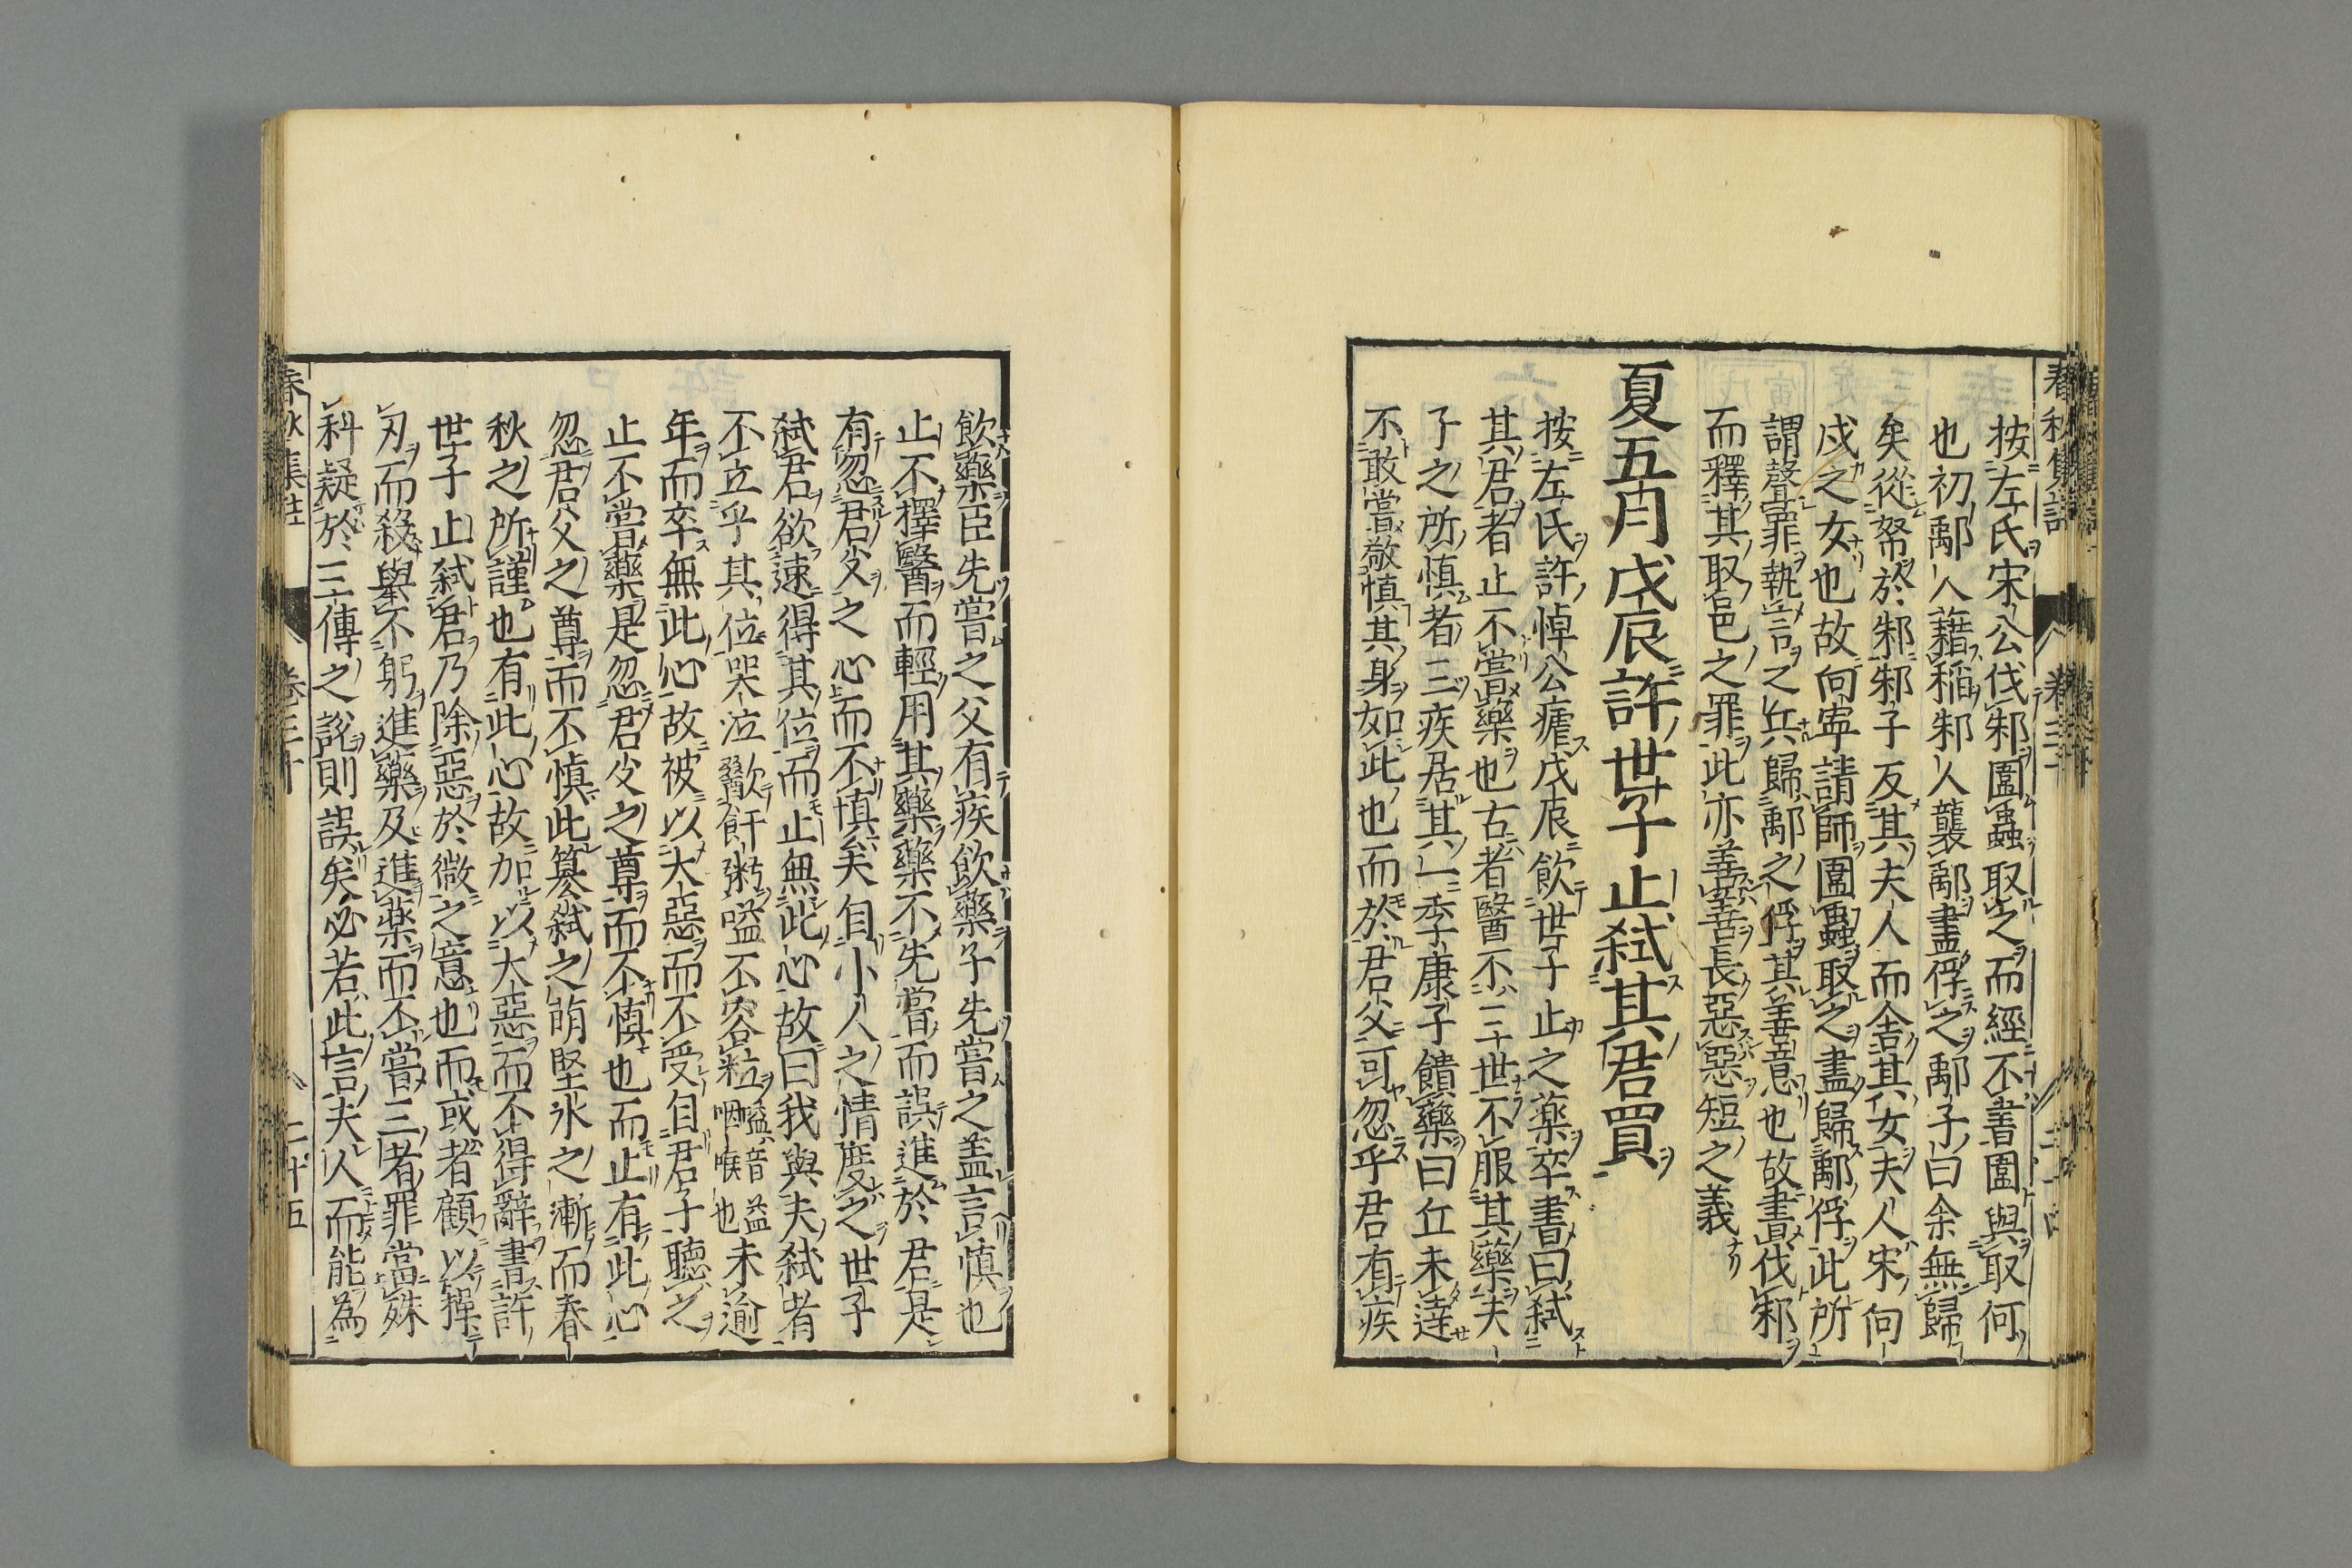 按左氏宋公伐邾圍蟲取之而經不書圍與取何
也初鄅人藉稻邾人襲鄅盡俘之鄅子曰余無歸
矣從帑於邾邾子反其夫人而舍其女夫人宋向
戍之女也故向寕請師圍蟲取之盡歸鄅俘此所
謂聲罪執言之兵歸鄅之俘其善意也故書伐邾
而釋其取邑之罪此亦善善長惡惡短之義
夏五月戊辰許世子止弑其君買
按左氏許悼公瘧戊辰飲世子止之薬卒書曰弑
其君者止不嘗藥也古者醫不三世不服其藥夫
子之所慎者三疾居其一季康子饋藥曰丘未達
不敢嘗敬慎其身如此也而於君父可忽乎君有疾
飲藥臣先嘗之父有疾飲藥子先嘗之盖言慎也
止不擇醫而輕用其藥藥不先嘗而誤進於君是
有忽君父之心而不慎矣自小人之情度之世子
弑君欲速得其位而止無此心故曰我與夫弑者
不立乎其位哭泣歠飦粥嗌不容粒嗌音益咽喉也未逾
年而卒無此心故被以大惡而不受自君子聽之
止不嘗藥是忽君父之尊而不慎也而止有此心
忽君父之尊而不慎此簒弑之萌堅氷之漸而春
秋之所謹也有此心故加以大惡而不得辭書許
世子止弑君乃除惡於微之意也而或者顧以操
刃而殺與不躬進藥及進薬而不嘗三者罪當殊
科疑於三傳之說則誤矣必若此言夫人而能為
春秋集註 卷三十 二十五